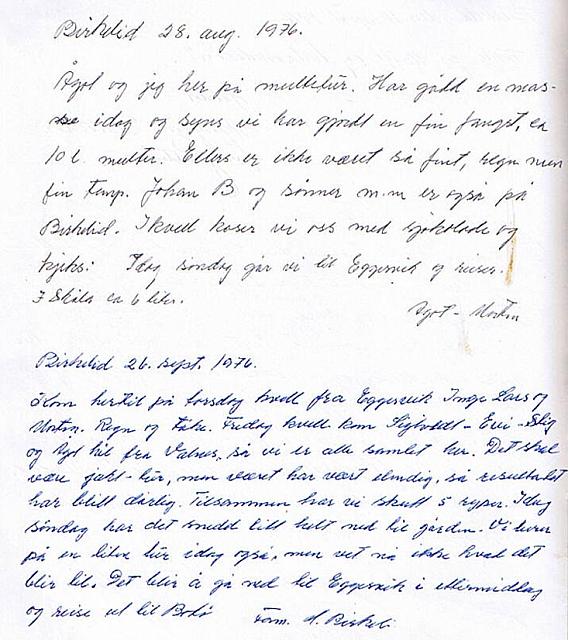 Birkelid 28. aug. 1976.
Ågot og jeg her på multetur. Har gådd en mas-
se idag og syns vi har gjordt en fin fangst, ca
10 l. multer. Ellers er ikke været så fint, regn men
fin temp. Johan B og sønner m.m er også på
Birkelid. Ikveld koser vi oss med sjokolade og
kjeks: Idag søndag går vi til Eggesvik og reiser.
I Skåla ca 6 liter.
Ågot - Morten
Birkelid 26. sept. 1976.
Kom hertil på torsdag kveld fra Eggesvik Inge Lars og
Morten. Regn og tåke. Fredag kveld kom Sigvaldt - Evi - Stig
og Ågot hit fra Valnes, så vi er alle samlet her. Det skal
være jakt-tur, men været har vært elendig, så resultatet
har blitt dårlig. Tilsammen har vi skutt 5 ryper. Idag
søndag har det snedd litt helt ned til gården. Vi turer
på en liten tur idag også, men vet nå ikke hvad det
blir til. Det blir å gå ned til Eggesvik i ettermiddag
og reise ut til Bodø
Form. A. Birkel.